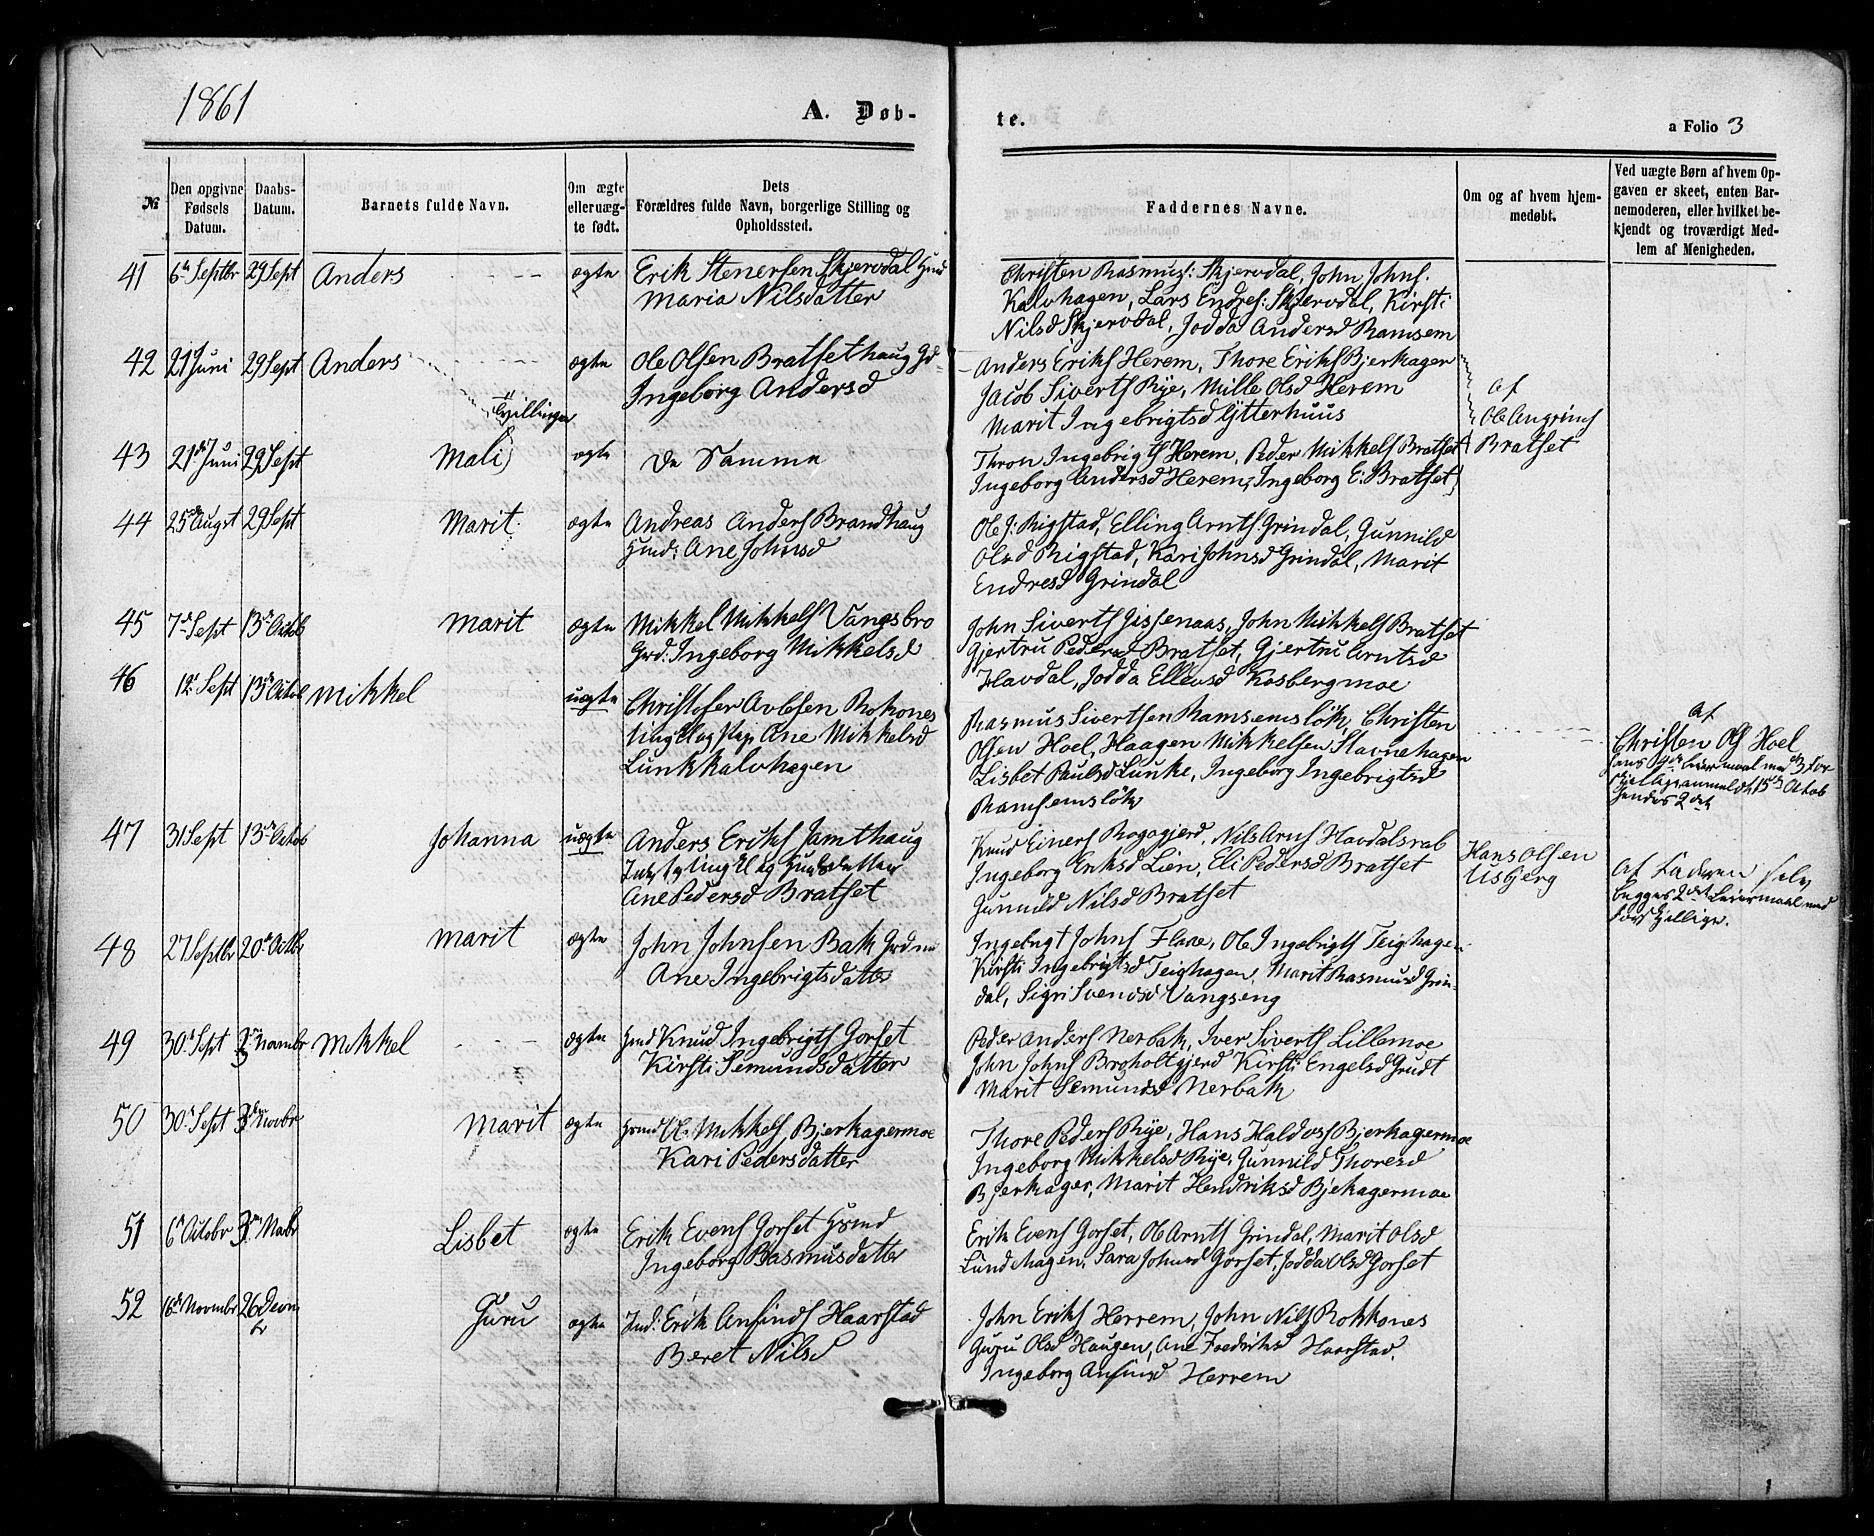 1861
A. Døb-
te.
a Folio 3
№
Den opgivne Fødsels Datum.
Daabs-Datum.
Barnets fulde Navn.
Om ægte eller uæg-te født.
Dets Forældres fulde Navn, borgerlige Stilling og Opholdssted.
Faddernes Navne.
Om og af hvem hjem-medøbt.
Ved uægte Børn af hvem Op-gaven er skeet, enten Bar-nemoderen, eller hvilket be-kjendt og troværdigt Med-lem af Menigheden.
41 6te Septbr 29 Sept Anders ægte Erik Stenersen Skjervdal
Maria Nilsdatter
Christen Rasmus: Skjervdal, John Johns:
Kalvhagen, Lars Endres: Skjervdal, Kirsti
Nilsd Skjervdal, Jodda Andersd Ramsem
42 21 Juni 29 Sept Anders ægte Ole Olsen Bratsethaug Gd
Ingeborg Andersd
Tvillinger
Anders Eriks Herem, Thore Eriks Bjerkager
Jacob Siverts Rye, Mille Olsd Herem
Marit Ingebrigtsd Ytterhuus
af
Ole Angrims
Bratset
43 21de Juni 29 Sept Mali ægte De Samme
Thron Ingebrigts Herem, Peder Mikkels Bratset
Ingeborg Andersd Herem, Ingeborg E: Bratset
44 25de Augst 29 Sept Marit ægte Andreas Anders Brandhaug
Hmd: Ane Johnsd
Ole J: Rigstad, Elling Arnts Grindal, Gunnild
Olsd Rigstad, Kari Johnsd Grindal, Marit
Endresd Grindal
45 7de Sept 13de Octob Marit ægte Mikkel Mikkels Vangsbro
Grd: Ingeborg Mikkelsd
John Siverts Gissenaas, John Mikkels Bratset
Gjertru Pedersd Bratset, Gjertru Arntsd
Havdal, Jodda Ellevsd Kosbergmoe
46 12te Sept 13de Octob Mikkel uægte Christofer Rokones
Ane Mikkelsd
Lunkkalvhagen
Rasmus Sivertsen Ramsemsløk, Christen
Olsen Hoel, Haagen Mikkelsen Stavnehagen
Lisbet Paulsd Lunke, Ingeborg Ingebrigtsd
Ramsemsløk
af
Christen Ols Hoel
hans
anmeldt 15de Octob
hendes 2det
47 31 Sept 13de Octob Johanna uægte Anders Eriks Jamthaug
Ane Pedersd Bratset
Knud Einers Rogogjerd, Nils Arns Havdalsrab
Ingeborg Eriksd Lien, Eli Pedersd Bratset
Gunnild Nilsd Bratset
Hans Olsen
Usbjerg
af Faderen selv
begges 2det Leiermaal med
48 27 Septbr 20de Octbr Marit ægte John Johnsen Bak
Ane Ingebrigtsdatter
Ingebrigt Johns Flaae, Ole Ingebrigts Teighagen
Kirsti Ingebrigtsd Teighagen, Marit Rasmusd Grin-
dal, Sigri Svendsd Vangseng
49 30te Sept 3 Nombr Mikkel ægte Gmd Knud Ingebrigts Gorset
Kirsti Semundsdatter
Peder Anders Nerbak, Iver Siverts Lillemoe
John Johns Broholtgjerd Kirsti Engelsd Grudt
Marit Semundsd Nerbak
50 30te Sept 3 Novbr Marit ægte Ole Mikkels Bjerkagermoe
Kari Pedersdatter
Thore Peders Rye, Hans Haldors Bjerkagermoe
Ingeborg Mikkelsd Rye, Gunnild Thoresd
Bjerkager, Marit Hendriksd Bjekagermoe
51 6te Octobr 3 Nobr Lisbet ægte Erik Evens Gorset
Ingeborg Rasmusdatter
Erik Evens Gorset, Ole Arnts Grindal, Marit Olsd
Lundehagen, Sara Johnsd Gorset, Jodda Olsd Gorset
52 16de Novembr 26 Decm
br Guru ægte Ind: Erik Anfinds Haarstad
Beret Nilsd
John Eriks Herrem, John Nils Rokkones
Guru Olsd Haugen, Ane Fredriksd Haarstad,
Ingeborg Anfinsd Herrem